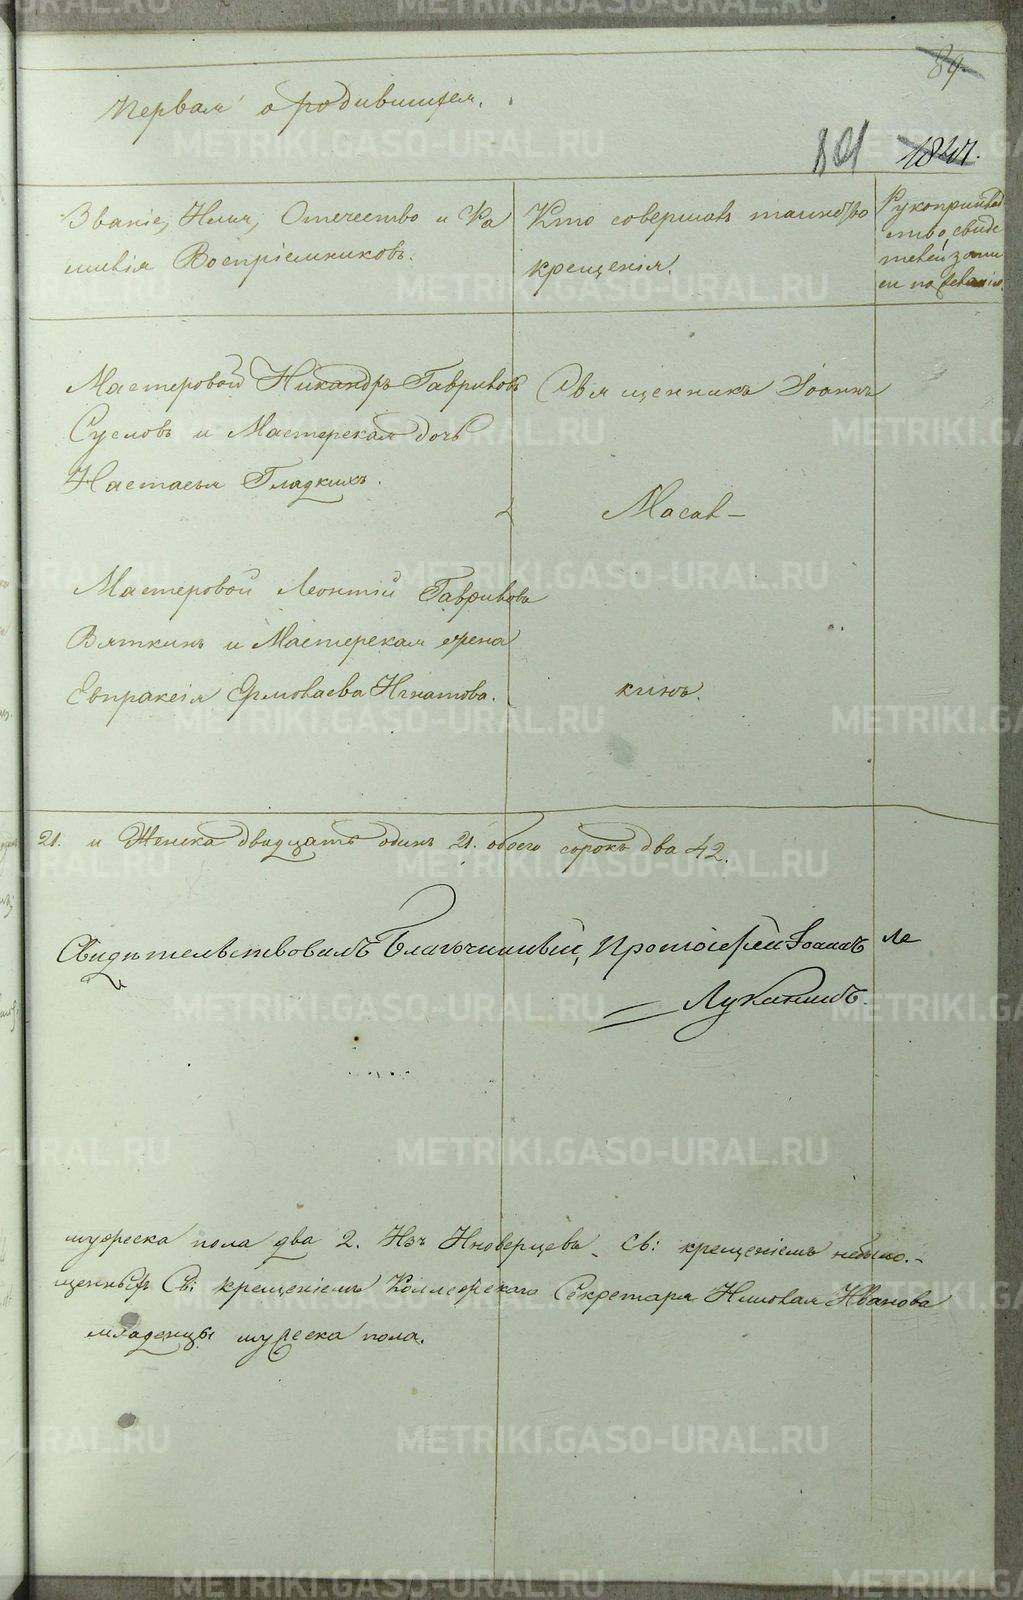 89
Первая о родившихся.
801 1847.
Званіе, Имя, Отечество и Фа
милія Воспріемниковъ.
Кто совершалъ таинство
крещенія.
Рукоприклад
ство свиде
телей записи
по желанію.
Мастеровой Никандръ Гавриловъ
Сусловъ и Мастерская дочь
Настасья Гладкихъ.
Священникъ Іоаннъ
Масал-
Мастеровой Леонтій Гавриловъ
Вяткинъ и Мастерская жена
Евпраксія Ермолаева Игнатова.
кинъ.
21. и Женска двадцать одинъ 21. обоего сорокъ два 42.
Свидѣтельствовалъ Благочинный, Протоіерей Іоаннъ
Луканинъ.
мужеска пола два 2. Изъ Иноверцевъ Св: крещеніемъ небыло.-
щенныхъ Св: крещеніемъ Коллежскаго Секретаря Николая Иванова
младенцы мужеска пола.
METRIKI.GASO-URAL.RU